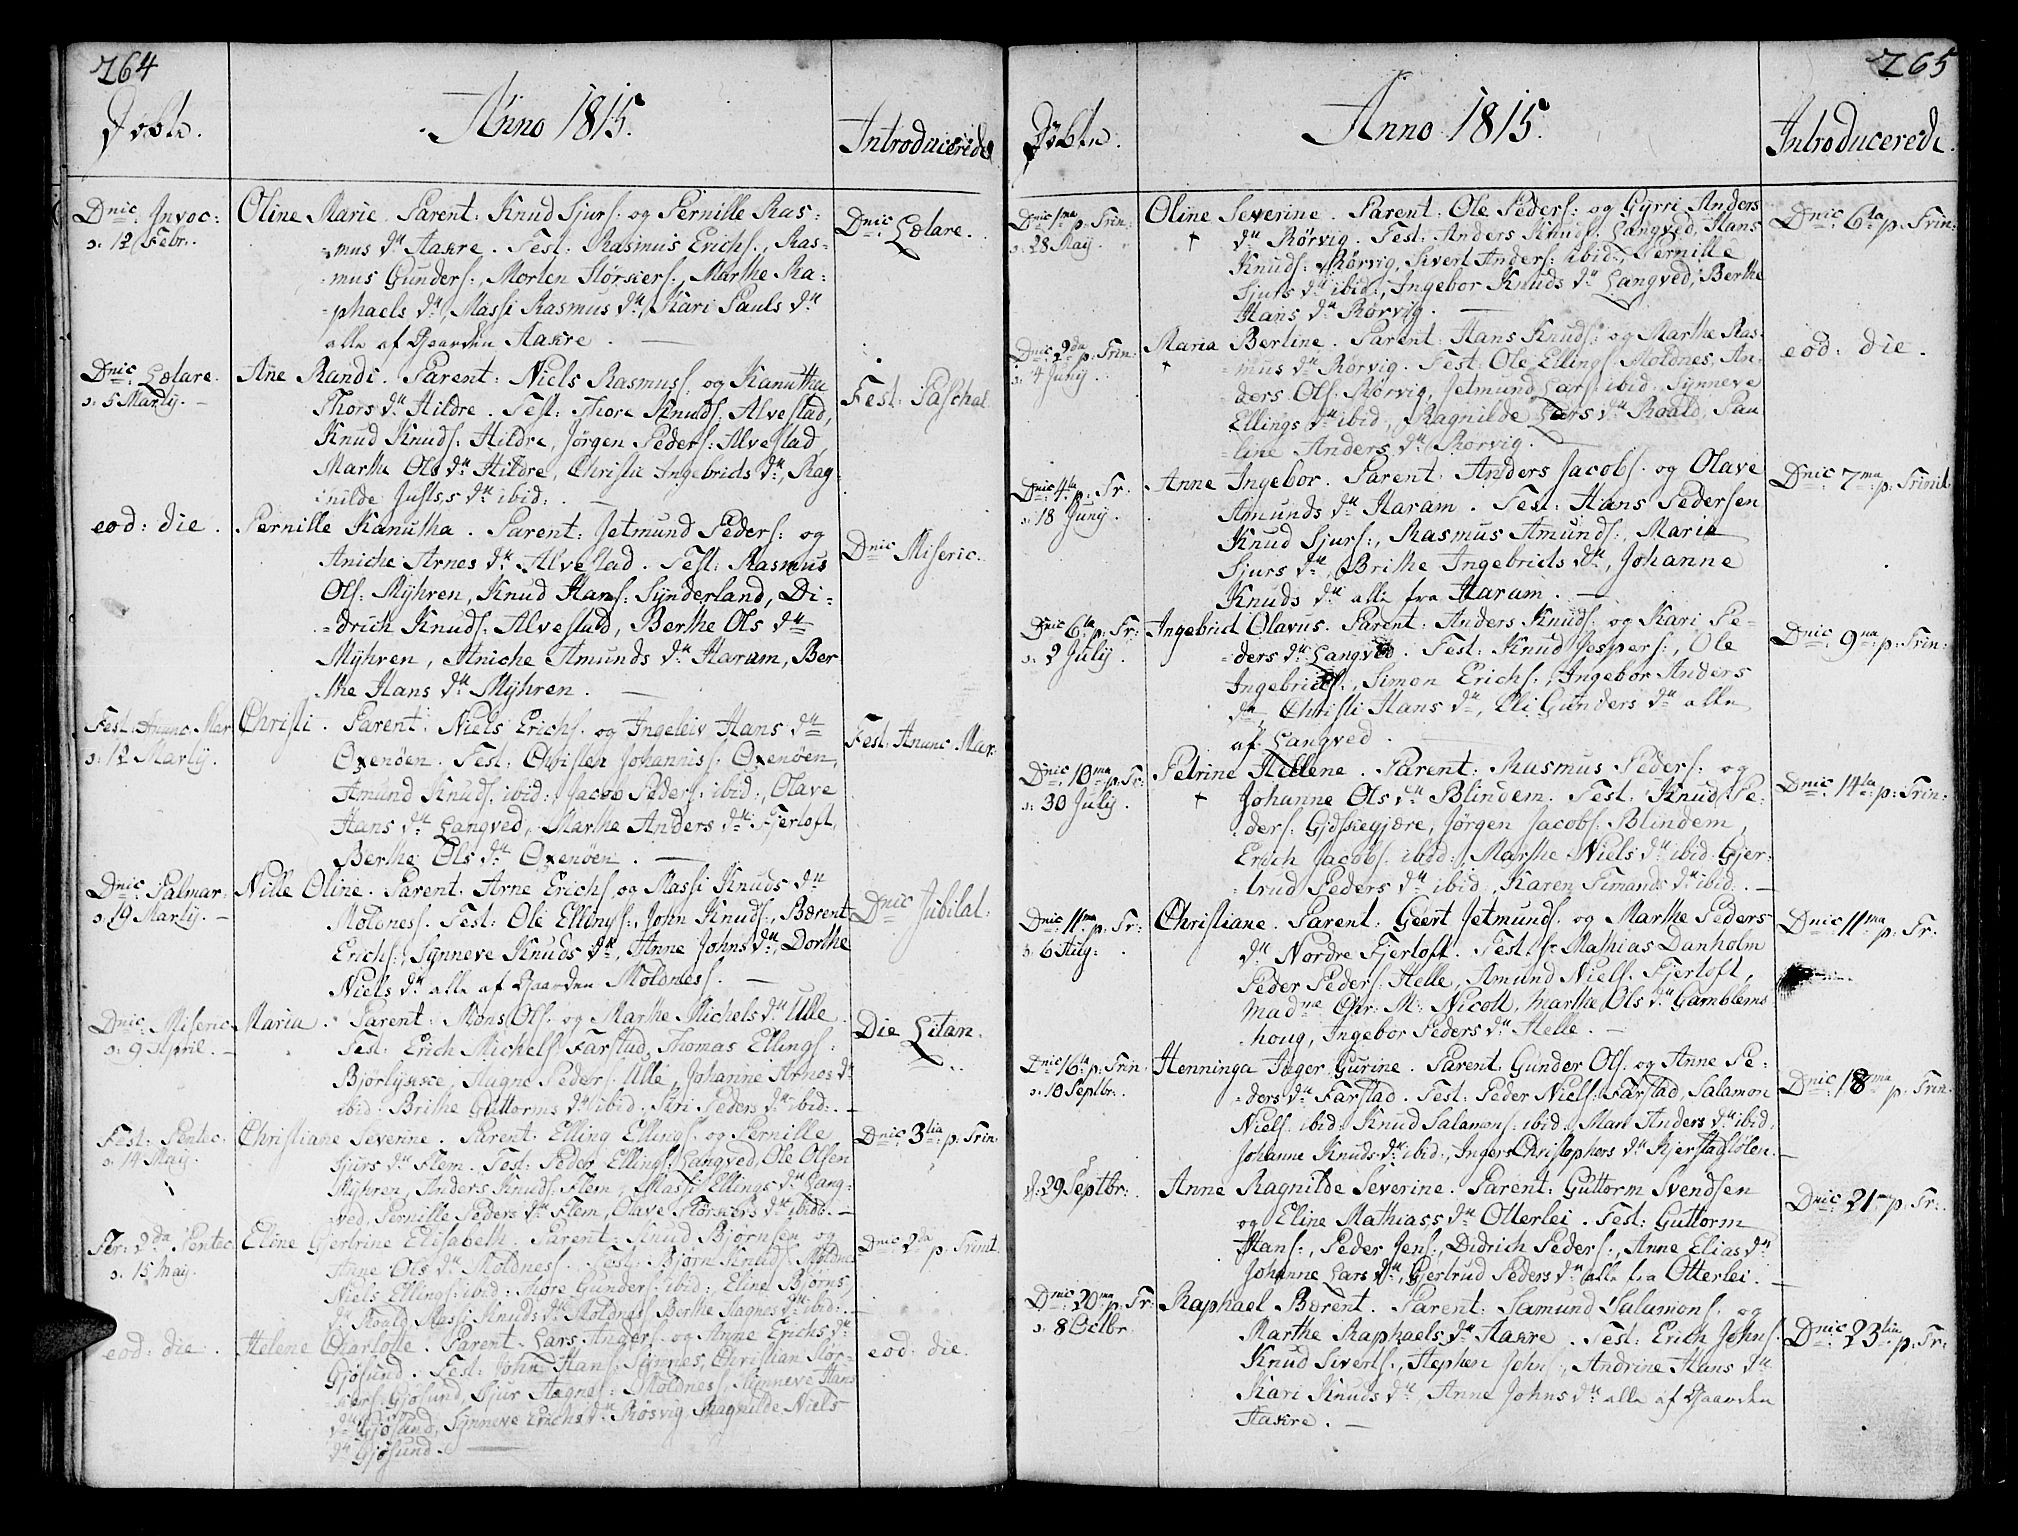 264
Døbte.
Anno 1815.
Introducerede
Dnic: Invoc:
ɔ: 12 Febr:
Oline Marie. Parent: Knud Sjurs. og Pernille Ras-
mus dtr Aakre. Test: Rasmus Erichs., Ras-
mus Gunders:, Morten Størkers:, Marthe Ra-
phaels dtr, Massi Rasmus dtr, Kari Pauls dtr
alle af Gaarden Aakre.
Dnic: Lætare.
Dnic: Lætare.
ɔ: 5 Martij.
Ane Randi. Parent: Niels Rasmus. og Kanutha
Thors dtr Hildre. Test: Thore Knuds. Alvestad,
Knud Knuds. Hildre, Jørgen Peders: Alvestad
Marthe Ols dtr Hildre, Christi Ingebrids dtr, Rag-
nilde Justss dtr ibid:
Fest: Paschat.
eod: die.
Pernille Kanutha. Parent: Jetmund Peders: og
Aniche Arnes dtr Alvestad. Test: Rasmus
Ols: Myhren, Knud Hans: Synderland, Di-
drich Knuds: Alvestad, Berthe Ols dtr
Myhren, Aniche Amunds dtr Haram, Ber
the Hans dtr Myhren.
Dnic Miseric.
Fest: Anunc: Mar
ɔ: 12 Martij.
Christi. Parent: Niels Erichs. og Ingeleiv Hans dtr
Oxenøen. Test: Christen Johannis. Oxenøen,
Amund Knuds. ibid:, Jacob Peders. ibid:, Olave
Hans dtr Langved, Marthe Anders dtr Fjertoft,
Berthe Ols dtr Oxenøen.
Fest: Anunc: Mar:
Dnic: Palmar:
ɔ: 19 Martij.
Nille Oline. Parent: Arne Erichs. og Massi Knuds dtr
Moldness. Test: Ole Ellings:, John Knuds:, Bærent
Erichs:, Synneve Knuds dtr, Anne Johns dtr, Dorthe
Niels dtr alle af Gaarden Moldness.
Dnic Jubilat:
Dnic: Miseric
ɔ: 9 April.
Maria. Parent: Mons Ols. og Marthe Michels dtr Ulle.
Test: Erich Michels: Farstad, Thomas Ellings:
Bjorlykke, Hagne Peders: Ulle, Johanne Arnes dtr
ibid: Brithe Guttorms dtr ibid: Siri Peders dtr ibid:
Die Litan.
Fest: Pentec:
ɔ: 14 Maij.
Christiane Severine. Parent: Elling Ellings. og Pernille
Sjurs dtr Flem. Test: Peder Ellings: Langved, Ole Olsen
Myhren, Anders Knuds: Flem, Massi Ellings dtr Lang-
ved, Pernille Peders dtr Flem, Olave Størkers dtr ibid:
Dnic: 3tia p: Trin:
Fer: 2da Pentec
ɔ: 15 Maij.
Eline Gjertrine Elisabeth. Parent: Knud Bjørnsen og
Anne Ols dtr Moldness. Test: Bjørn Knuds: Moldnes
Niels Ellings: ibid: Thore Gunders: ibid: Eline Bjørns
dtr Roald Massi Knuds dtr Moldness Berthe Hagnes dtr ibid:
Dnic 2da p: Trinit.
eod: die.
Helene Charlotte. Parent: Lars Angers: og Anne Erichs dtr
Gjøsund. Test: John Hans: Synnes, Christian Stor-
kers: Gjøsund, Sjur Hagnes: Moldness, Synneve Hans
dtr Gjøsund, Synneve Erichs dtr Røsvig, Ragnilde Niels
dtr Gjøsund.
eod: die.
265
Døbte.
Anno 1815.
Introducerede.
Dnic: 1ma p: Trin:
ɔ: 28 Maij
Oline Severine. Parent: Ole Peders: og Gyrri Anders
dtr Rørvig. Test: Anders Knuds. Langved, Hans
Knuds: Rørvig, Sivert Anders: ibid:, Pernille
Sjurs dtr ibid:, Ingebor Knuds dtr Langved, Berthe
Hans dtr Rørvig.
Dnic: 6ta p: Trin:
Dnic: 2da p: Trin:
ɔ: 4 Junij
Maria Bertine. Parent: Hans Knuds: og Marthe Ras-
mus dtr Rørvig. Test: Ole Ellings Moldnes, An-
ders Ols. Rørvig, Jetmund Lars: ibid: Synneve
Ellings dtr ibid, Ragnilde Lars dtr Roald, Pau
line Anders dtr Rørvig.
eod: die.
Dnic: 4ta p: Tr.
ɔ: 18 Junij.
Anne Ingebor. Parent: Anders Jacobs. og Olave
Amunds dtr Haram. Test: Hans Pedersen
Knud Sjurs:, Rasmus Amunds:, Maria
Sjurs dtr, Brithe Ingebrids dtr, Johanne
Knuds dtr alle fra Haram.
Dnic: 7ma p: Trinit
Dnic 6ta p: Tr:
ɔ: 2 Julij.
Ingebrid Olavus. Parent: Anders Knuds. og Kari Pe-
ders dtr Langved. Test: Knud Jespers:, Ole
Ingebrids:, Simon Erichs:, Ingebor Anders
dtr, Christi Hans dtr, Eli Gunders dtr alle
af Langved.
Dnic: 9na p: Trin:
Dnic: 10ma p: Tr:
ɔ: 30 Julij.
Petrine Hellene. Parent: Rasmus Peders: og
Johanne Ols dtr Blindem. Test: Knud Pe-
ders: Gidskegjære, Jørgen Jacobs: Blindem,
Erich Jacobs. ibid:, Marthe Niels dtr ibid: Gjer-
trud Peders dtr ibid, Karen Timands dtr ibid.
Dnic: 14ta p: Trin:
Dnic: 11ma p: Tr:
ɔ: 6 Aug:
Christiane. Parent: Geert Jetmunds. og Marthe Peders
dtr Nordre Fjertoft. Test: Hr Mathias Danholm
Peder Peders: Helle, Amund Niels. Fjertoft,
Madme Chr: M: Nicoll, Marthe Ols dtr Gamblems
houg, Ingebor Peders dtr Helle.
Dnic: 11ma p: Tr.
Dnic: 16ta p: Trin
ɔ: 10 Septbr:
Henninga Inger Gurine. Parent: Gunder Ols. og Anne Pe-
ders dtr Farstad. Test: Peder Niels: Farstad, Salamon
Niels. ibid: Knud Salamons: ibid: Mari Anders dtr ibid:
Johanne Knuds dtr ibid:, Inger Christophers dtr Kjerstadsløten.
Dnic: 18ma p: Trin:
d: 29 Septbr:
Anne Ragnilde Severine. Parent: Guttorm Svendsen
og Eline Mathiass dtr Otterlei. Test: Guttorm
Hans:, Peder Jens:, Didrich Peders:, Anne Elias dtr
Johanne Lars dtr, Gjertrud Peders dtr alle fra Otterlei.
Dnic: 21ma p: Tr:
Dnic: 20ma p: Tr:
ɔ: 8 Octbr
Raphael Bærent. Parent: Samund Salamons. og
Marthe Raphaels dtr Aakre. Test: Erich Johns.
Knud Siverts:, Stephen Johns:, Andrine Hans dtr
Kari Knuds dtr, Anne Johns dtr alle af Gaarden
Aakre.
Dnic: 23tia p: Tr: